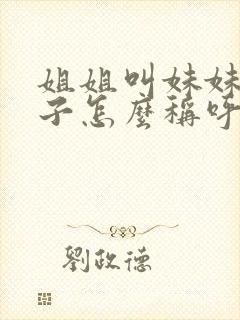 姐姐叫妹妹
子怎麼稱呼
劉政德